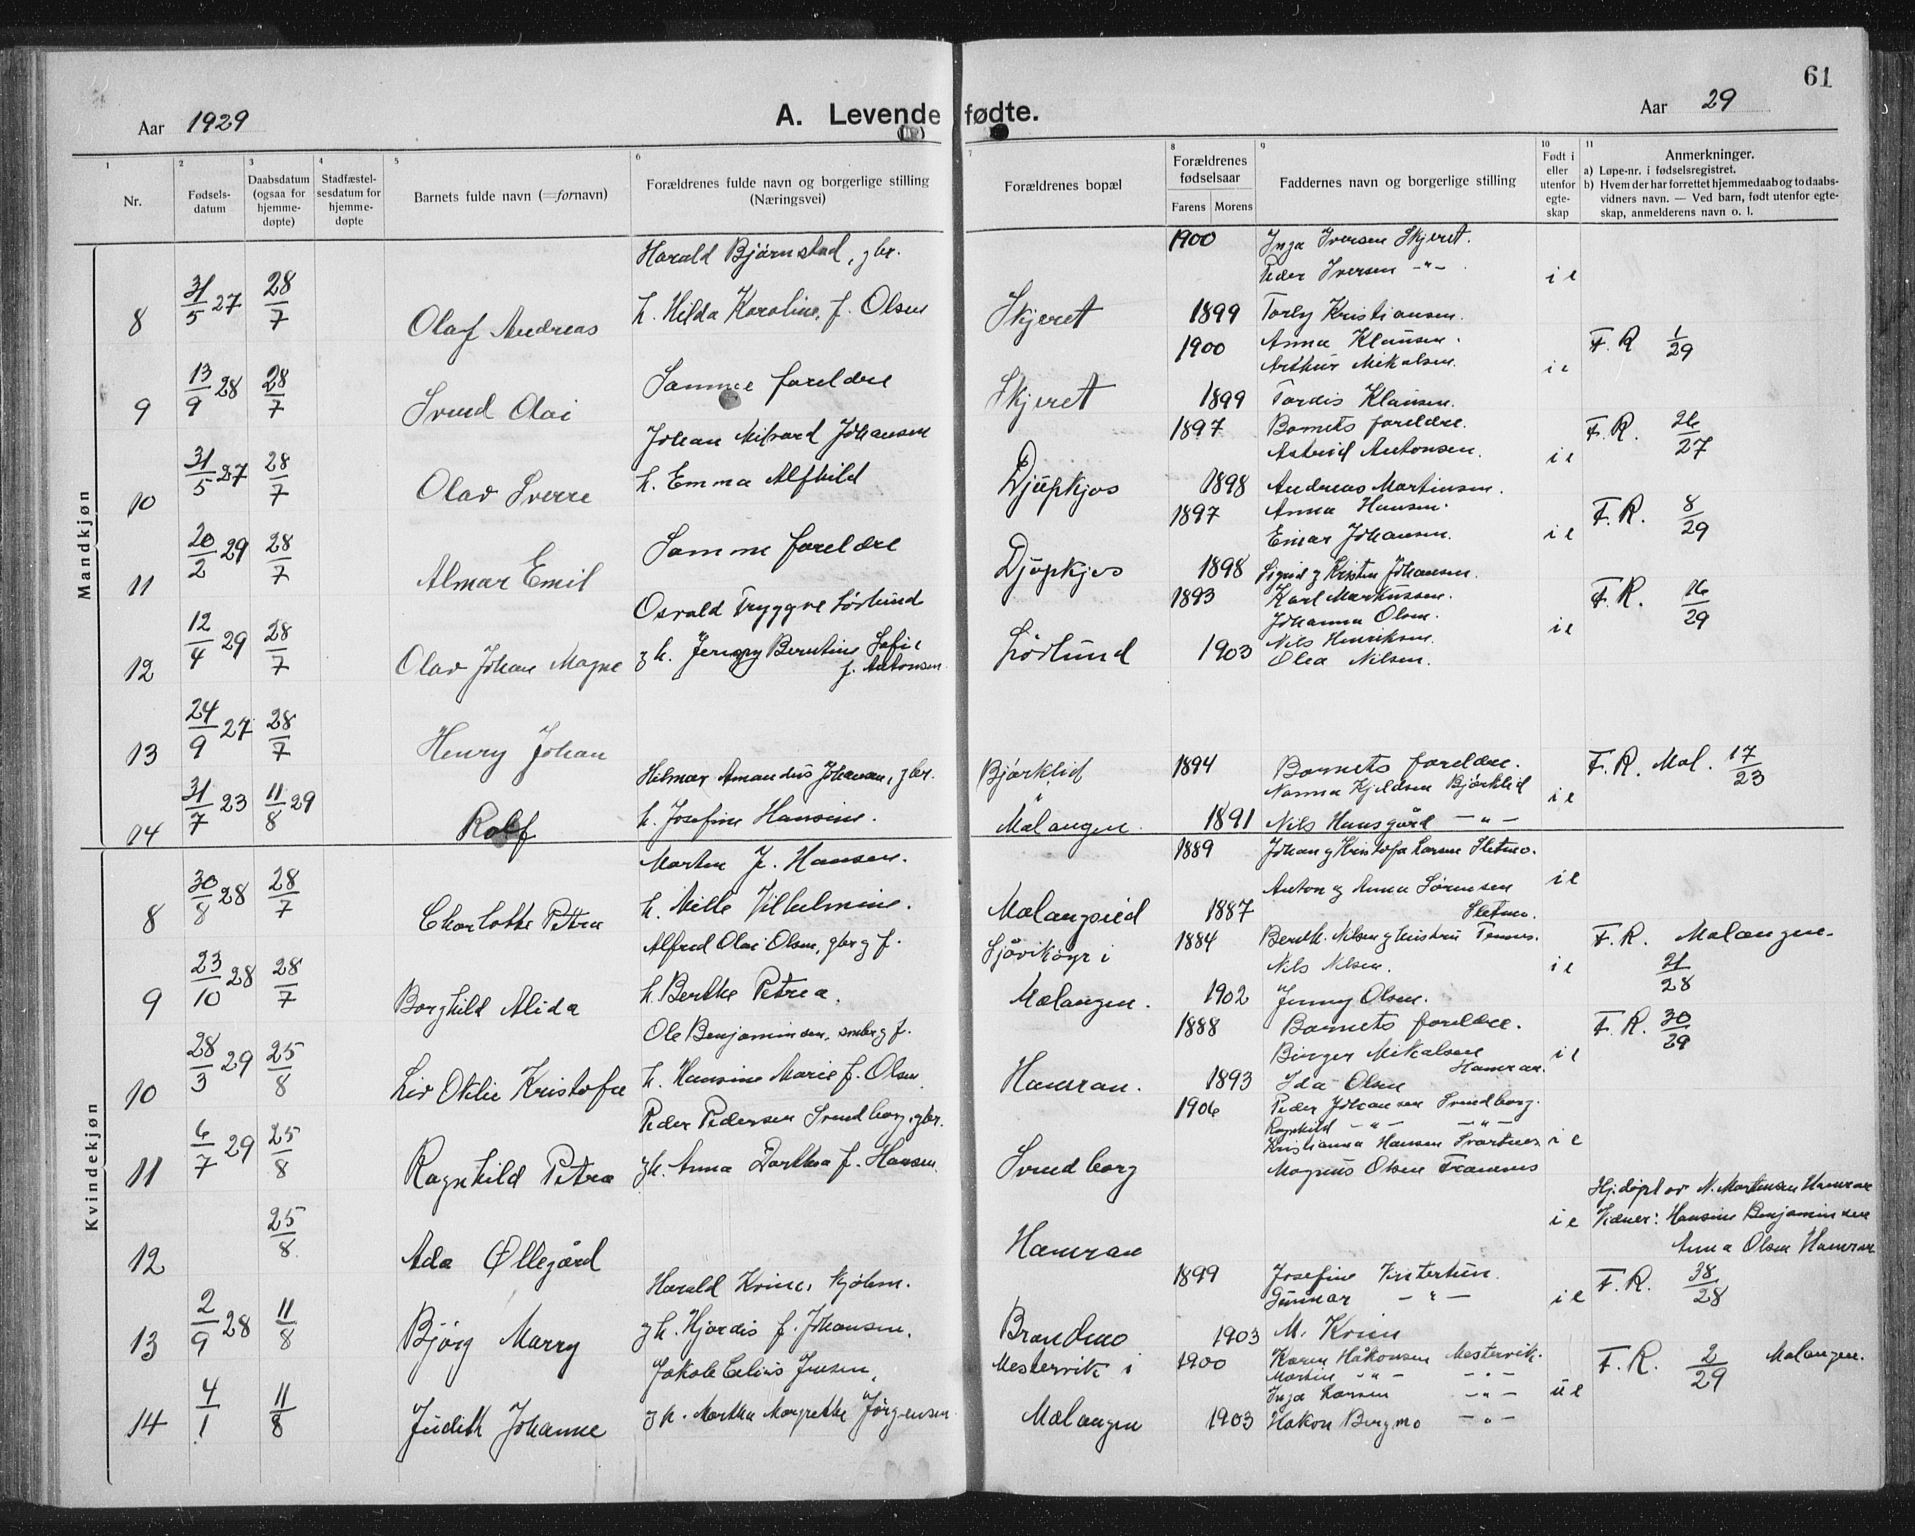 61
Aar 1929
A. Levende fødte.
Aar 29
1 2 3 4 5 6 7 8 9 10 11
Nr.
Fødsels-
datum
Daabsdatum
(ogsaa for
hjemme-
døpte)
Stadfæstel-
sesdatum for
hjemme-
døpte
Barnets fulde navn (=fornavn)
Forældrenes fulde navn og borgerlige stilling
(Næringsvei)
Forældrenes bopæl
Forældrenes
fødselsaar
Farens Morens
Faddernes navn og borgerlige stilling
Født i
eller
utenfor
egte-
skap
Anmerkninger.
a) Løpe-nr. i fødselsregistret.
b) Hvem der har forrettet hjemmedaab og to daabs-
vidners navn. — Ved barn, født utenfor egte-
skap, anmelderens navn o. l.
Mandkjøn
Harald Bjørnstad, gbr. 1900 Inga Iversen Skjeret.
Peder Iversen -"- i e
8 31/5 27 28/7 Olaf Andreas h. Hilda Karoline, f. Olsen Skjeret 1899 Torly Kristiansen.
1900 Anna Klausen. F. R 1/29
Arthur Mikalsen. i e
9 13/9 28 28/7 Svend Olai Samme foreldre Skjeret 1899 Tordis Klausen.
Johan Milvard Johansen 1897 Barnets foreldre. F. R. 26/27
Astrid Antonsen. i e
10 31/5 27 28/7 Olav Sverre h. Emma Alfhild Djupkjos 1898 Andreas Martinsen.
1897 Anna Hansen. F. R. 8/29
Einar Johansen. i e
11 20/2 29 28/7 Almar Emil Samme foreldre Djupkjos 1898 Sigrid g Kristen Johansen.
Osvald Tryggve Sørlund 1893 Karl Markussen. F. R. 16/29
Johanna Olsen. i e
12 12/4 29 28/7 Olav Johan Magne g h. Jenny Berntine Sofie Sørlund 1903 Nils Henriksen.
f. Antonsen Olea Nilsen.
13 24/9 27 28/7 Henry Johan
Hilmar Amandus Johansen, gbr. Bjørklid 1894 Barnets foreldre. F. R. Mal. 17/23
Nanna Kjeldsen Bjørklid i e
14 31/7 23 11/8 29 Rolf h. Josefine Hansine. Malangen. 1891 Nils Hansgård -"-
Kvindekjøn
Martin J. Hansen. 1889 Johan g Kristofa Larsen Sletmo.
Anton g Anna Sørensen i e
8 30/8 28 28/7 Charlotte Petra h. Mille Vilhelmine. Malangseid 1887 Sletmo.
Alfred Olai Olsen, gbr g f. Sjøvikøyr i 1884 Berth. Nilsen g hustru Tennes. F. R. Malangen.
Nils Nilsen. i e 21/28
9 23/10 28 28/7 Borghild Alida h. Berthe Petrea. Malangen. 1902 Jenny Olsen.
Ole Benjaminsen, småbr g f. 1888 Barnets foreldre. F. R. 30/29
Birger Mikalsen i e
Hamran.
10 28/3 29 25/8 Liv Otelie Kristofa h. Hansine Marie f. Olsen Hamran. 1893 Ida Olsen
Peder Pedersen Svendborg, gbr. 1906 Peder Johansen Svendborg.
Ragnhild -"- -"-
Kristianna Hansen Svartnes i e
11 6/7 29 25/8 Ragnhild Petra g h. Anna Dorthea f. Hansen Svendborg Magnus Olsen Framnes
Hj. døpt av N. Martinsen Hamran
25/8 i e Vidner: Hansine Benjaminsen
12 Ada Øllegård Hamran Anna Olsen Hamran
Harald Kvine, kjøbm. 1899 Josefine Vintertun. F. R. 38/28
Gunnar -"- i e
13 2/9 28 11/8 Bjørg Marry g h. Hjørdis f. Johansen. Brandmo 1903 M. Krien
Jakob Celius Jensen, Mestervik i 1900 Karen Håkonsen Mestervik. F. R. 2/29 Malangen.
Martin -"- -"-
Inga Larsen -"- u e
14 4/1 11/8 Judith Johanne g h. Martha Margrethe Jørgensen Malangen 1903 Håkon Bergmo -"-